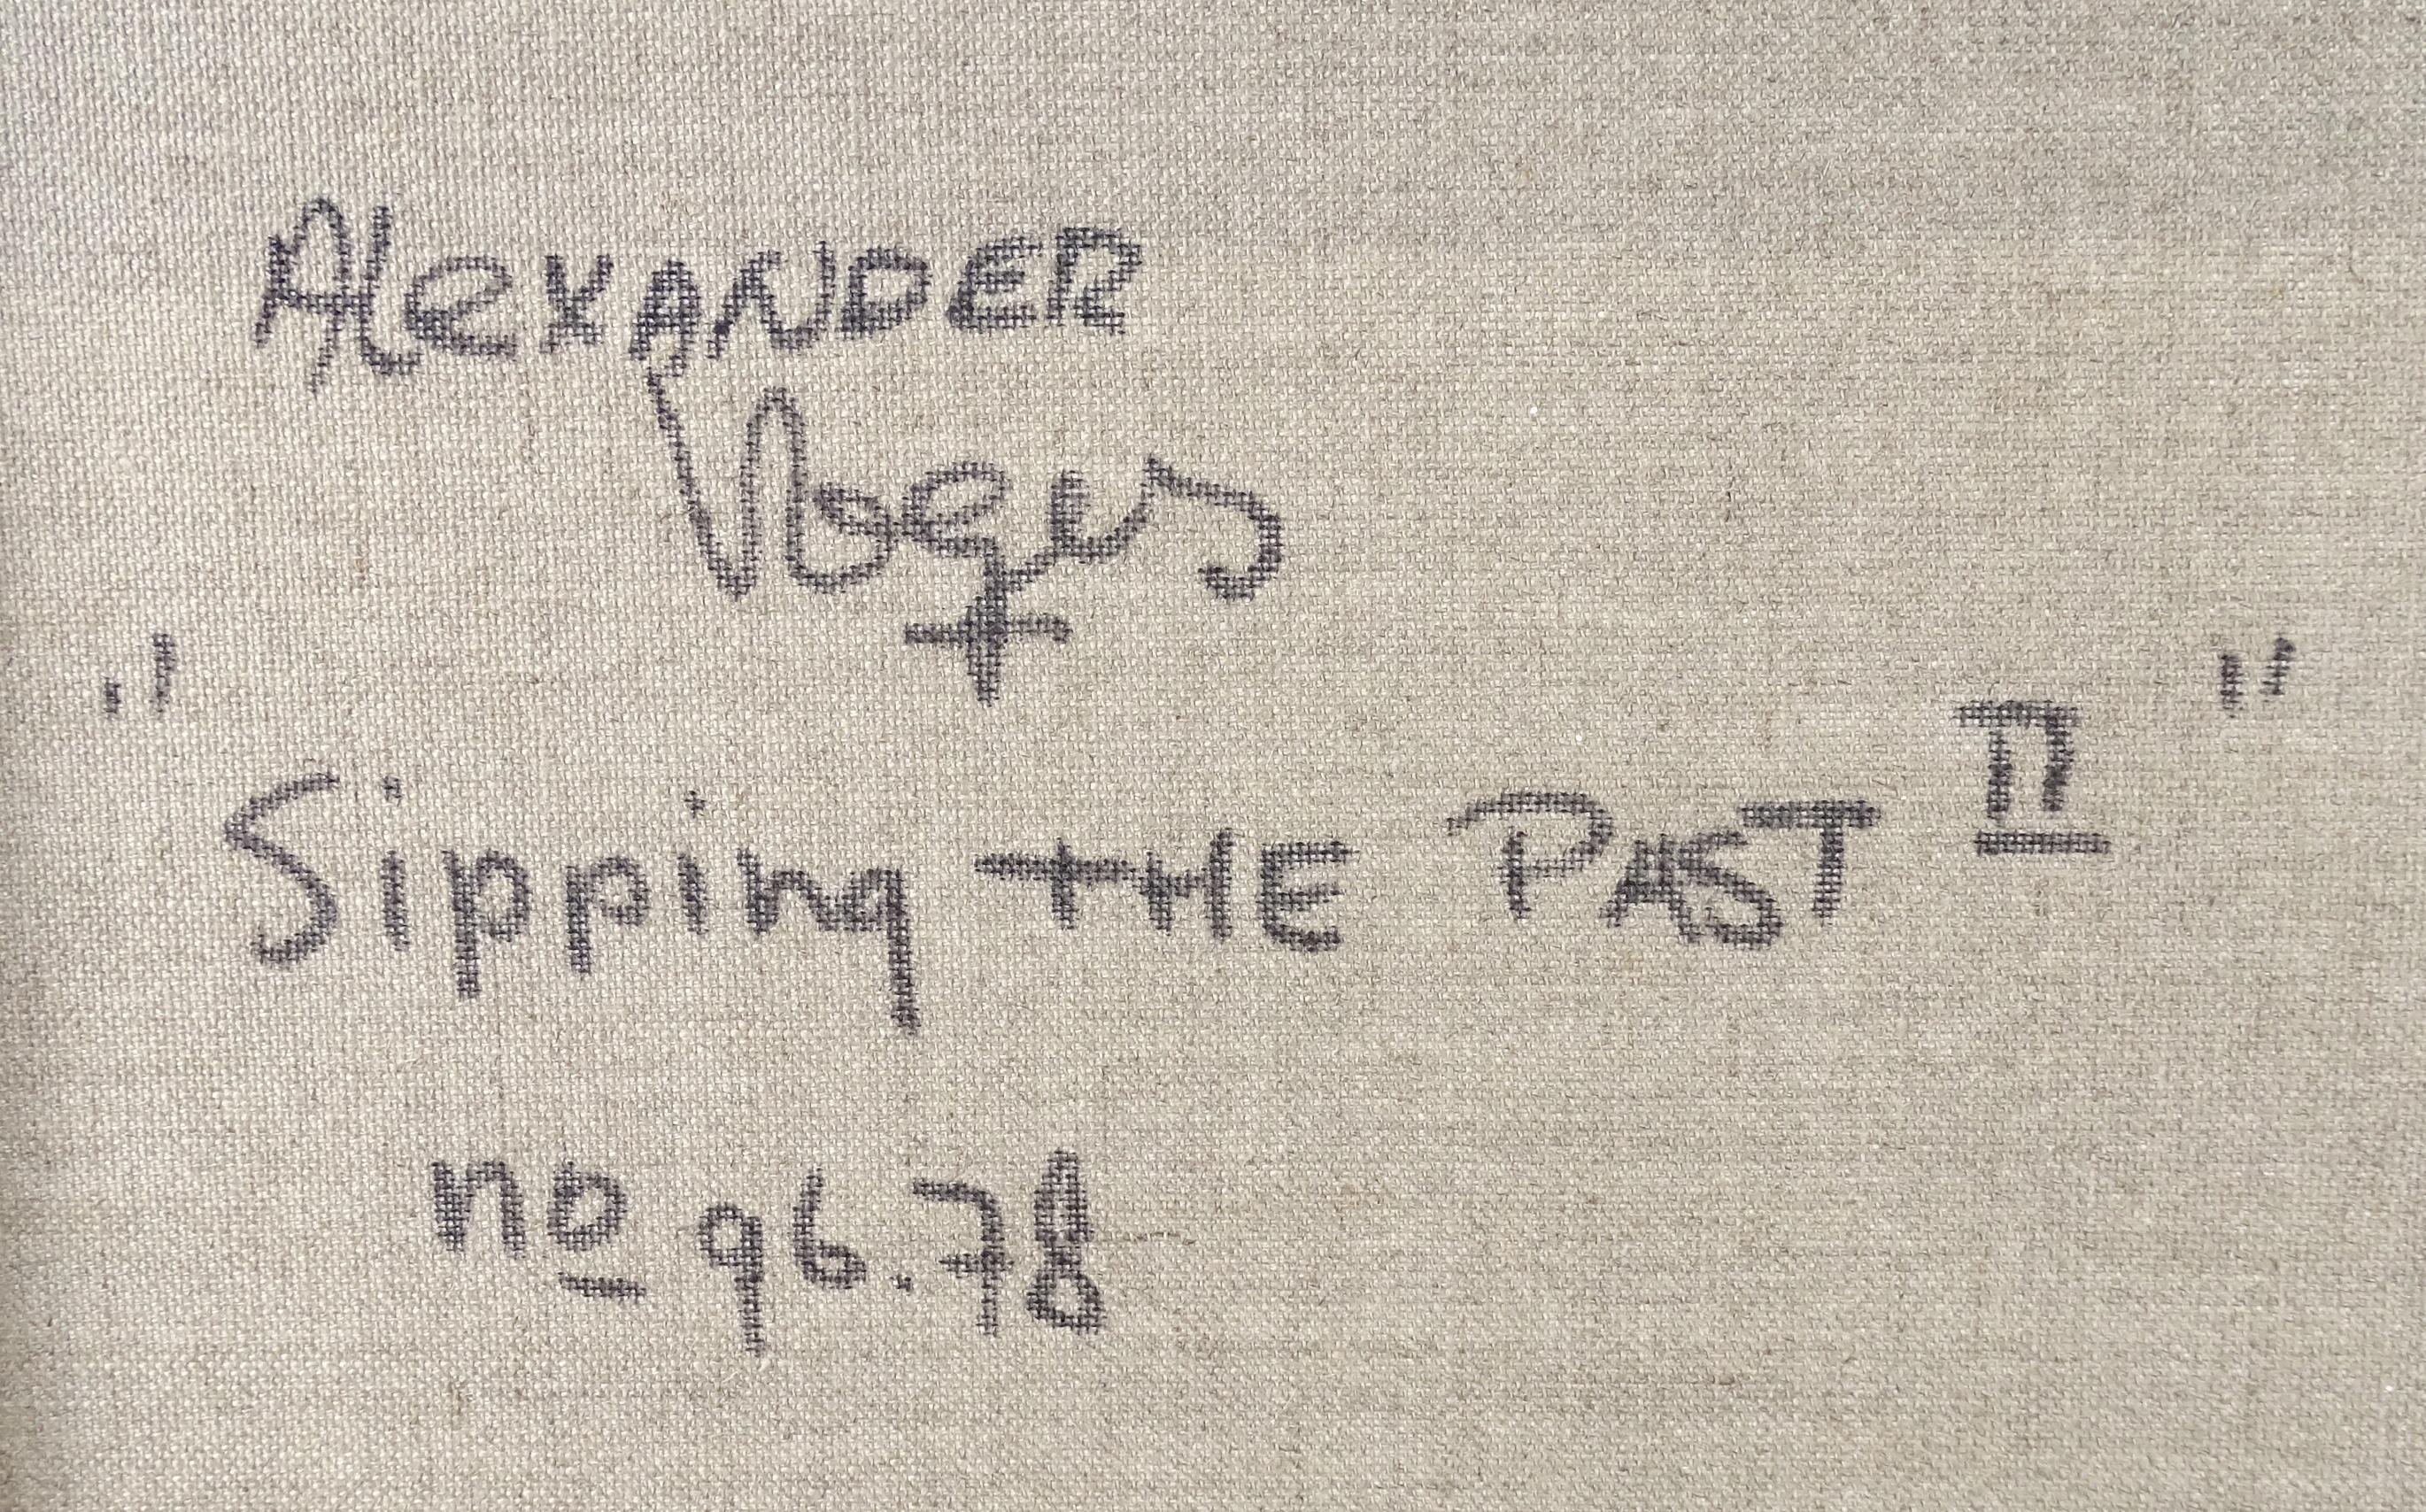 Alexander
"Sipping THE PAST II"
no 96.78